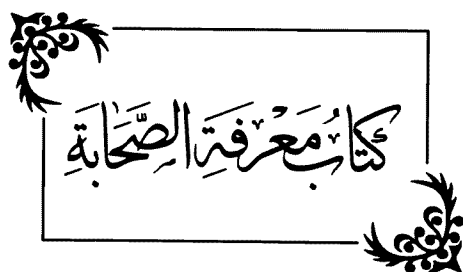 كتابُ مَعْرفَةِ الصَّحَابَةِ